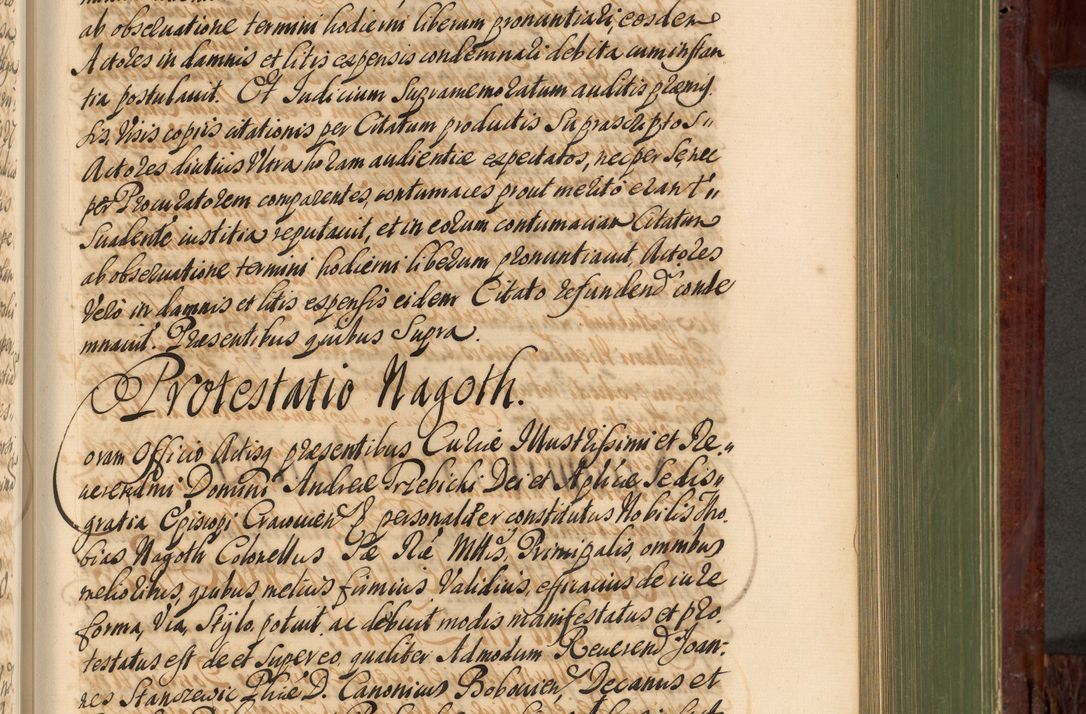 ab obseruatione termini hodierni liberum pronuntiari, eosdem
Actores in damnis et litis expensis condemnari debita cum instan
tia postulauit. Et Iudicium Supramemoratum auditis præmis
sis, Visis copiis citationis per Citatum productis Suprascriptos
Actores diutius Vltra horam audientiæ expectatos, nec per Se, nec
per Procuratorem comparentes, contumaces prout merito erant
Suadente iustitia reputauit, et in eorum contumaciam Citatum
ab obseruatione termini hodierni liberum pronuntiauit, Actores
Vero in damnis et litis expensis eidem Citato refundend conde
mnauit. Præsentibus quibus Supra.
Protestatio Nagoth.
Coram Officio Actisq præsentibus Curiæ Illustrissimi et Re
uerendmi Domini Andreæ Trzebicki Dei et Aplicæ Sedis
gratia Episcopi Cracouien & personaliter constitutus Nobilis Tho
bias Nagoth Colonellus Sæ Ræ Mttis, Principalis, omnibus
melioribus, quibus melius firmius Validius, efficacius de iure
forma, Via, Stylo, potuit ac debuit modis manifestatus et pro
testatus est de et Super eo, qualiter Admodum Reuerend Joan
nes Stanczewic Phiæ D. Canonicus Bobouien, Decanus et